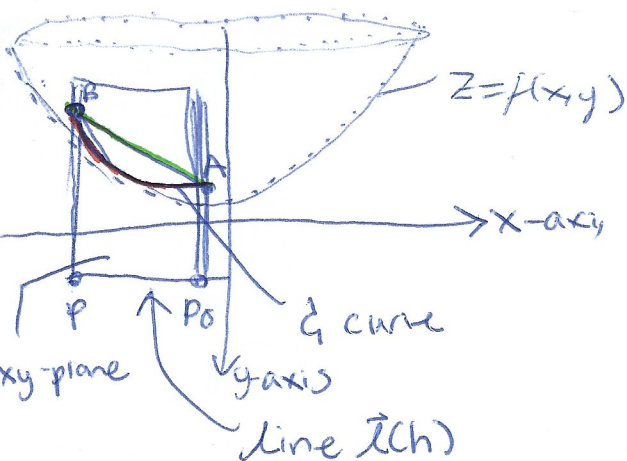 B
z=f(x,y)
A
x-axis
P
Po
C₁ curve
xy-plane
y-axis
line l⃗(h)